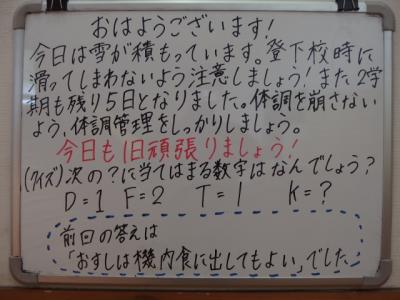 おはようございます!
今日は雪が積もっています。登下校時に
滑ってしまわないよう注意しましょう!また、2学
期も残り5日となりました。体調を崩さない
よう、体調管理をしっかりしましょう。
今日も1日頑張りましょう!
(クイズ)次の?に当てはまる数字はなんでしょう?
D=1 F=2 T=1 K=?
前回の答えは
「おすしは機内食に出してもよい」でした。